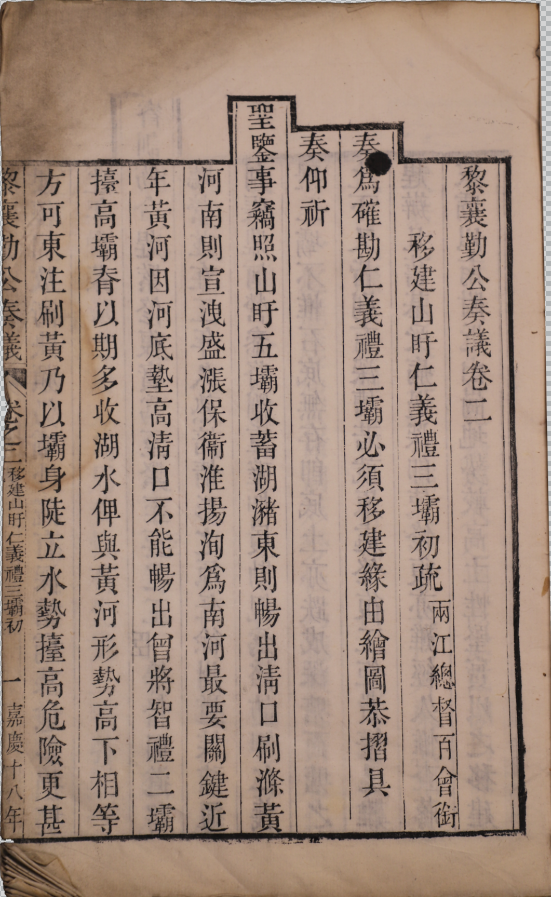 黎襄勤公奏議卷二
移建山盱仁義禮三壩初疏 兩江總督百會銜
奏爲確勘仁義禮三壩必須移建緣由繪圖恭摺具
奏仰祈
聖鑒事竊照山盱五壩收蓄湖瀦東則暢出淸口刷滌黃
河南則宣洩盛漲保衞淮揚洵爲南河最要關鍵近
年黃河因河底墊高淸口不能暢出曾將智禮二壩
擡高壩脊以期多收湖水俾與黃河形勢高下相等
方可東注刷黃乃以壩身陡立水勢擡高危險更甚
黎襄勤公奏議 卷之二 移建山盱仁義禮三壩初 一 嘉慶十八年